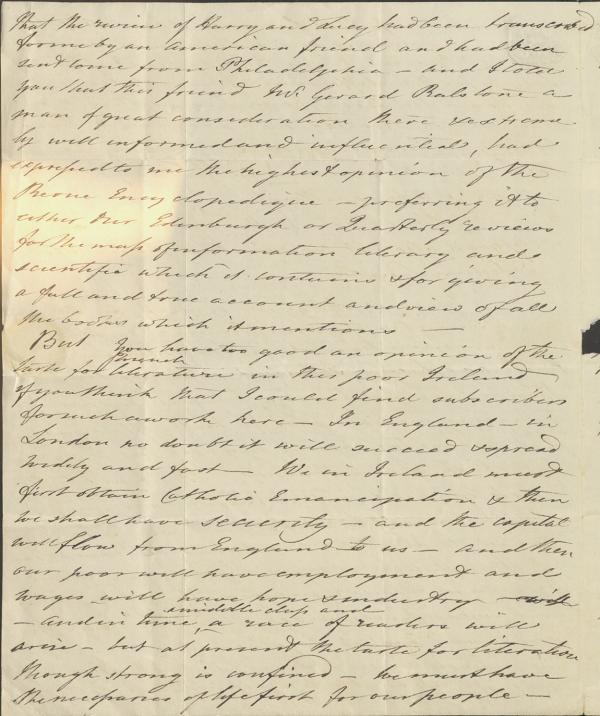 that the review of Harry and Lucy had been transcribed
for me by an American friend and had been
sent to me from Philadelphia — and I told
you that this friend Mr. Gerard Ralstone a
man of great consideration there & extreme
ly well informed and influential, had
expressed to me the highest opinion of the
Revue Encyclopedique — preferring it to
either our Edinburgh or Quarterly reviews
for the mass of information literary and
scientific which it contains & for giving
a full and true account and view of all
the books which it mentions —
But you have too good an opinion of the
french
taste for literature in this poor Ireland
if you think that I could find subscribers
for such a work here — In England — in
London no doubt it will succeed & spread
widely and fast — We in Ireland must
first obtain Catholic Emancipation & then
we shall have security — and the capital
will flow from England to us — and then
our poor will have employment and
wages will have hope & industry — will
a middle class and
— and in time, a race of readers will
arise — but at present the taste for literature
though strong is confined — We must have
the necessaries of life first for our people —